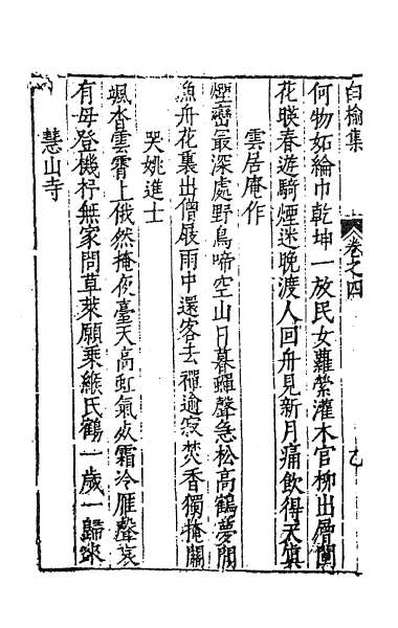 白榆集
卷之四
何物妬綸巾乾坤一放民女蘿縈灌木官柳出層闉
花暎春遊騎煙迷晚渡人回舟見新月痛飲得天真
雲居庵作
煙巒最深處野鳥啼空山日暮蟬聲急松高鶴夢閒
魚舟花裏出僧屐雨中還客去禪逾寂焚香獨掩關
哭姚進士
颯沓雲霄上俄然掩夜臺天高虹氣
霜冷雁聲哀
有母登機杼無家問草萊願乘緱氏鶴一歲一歸來
慧山寺